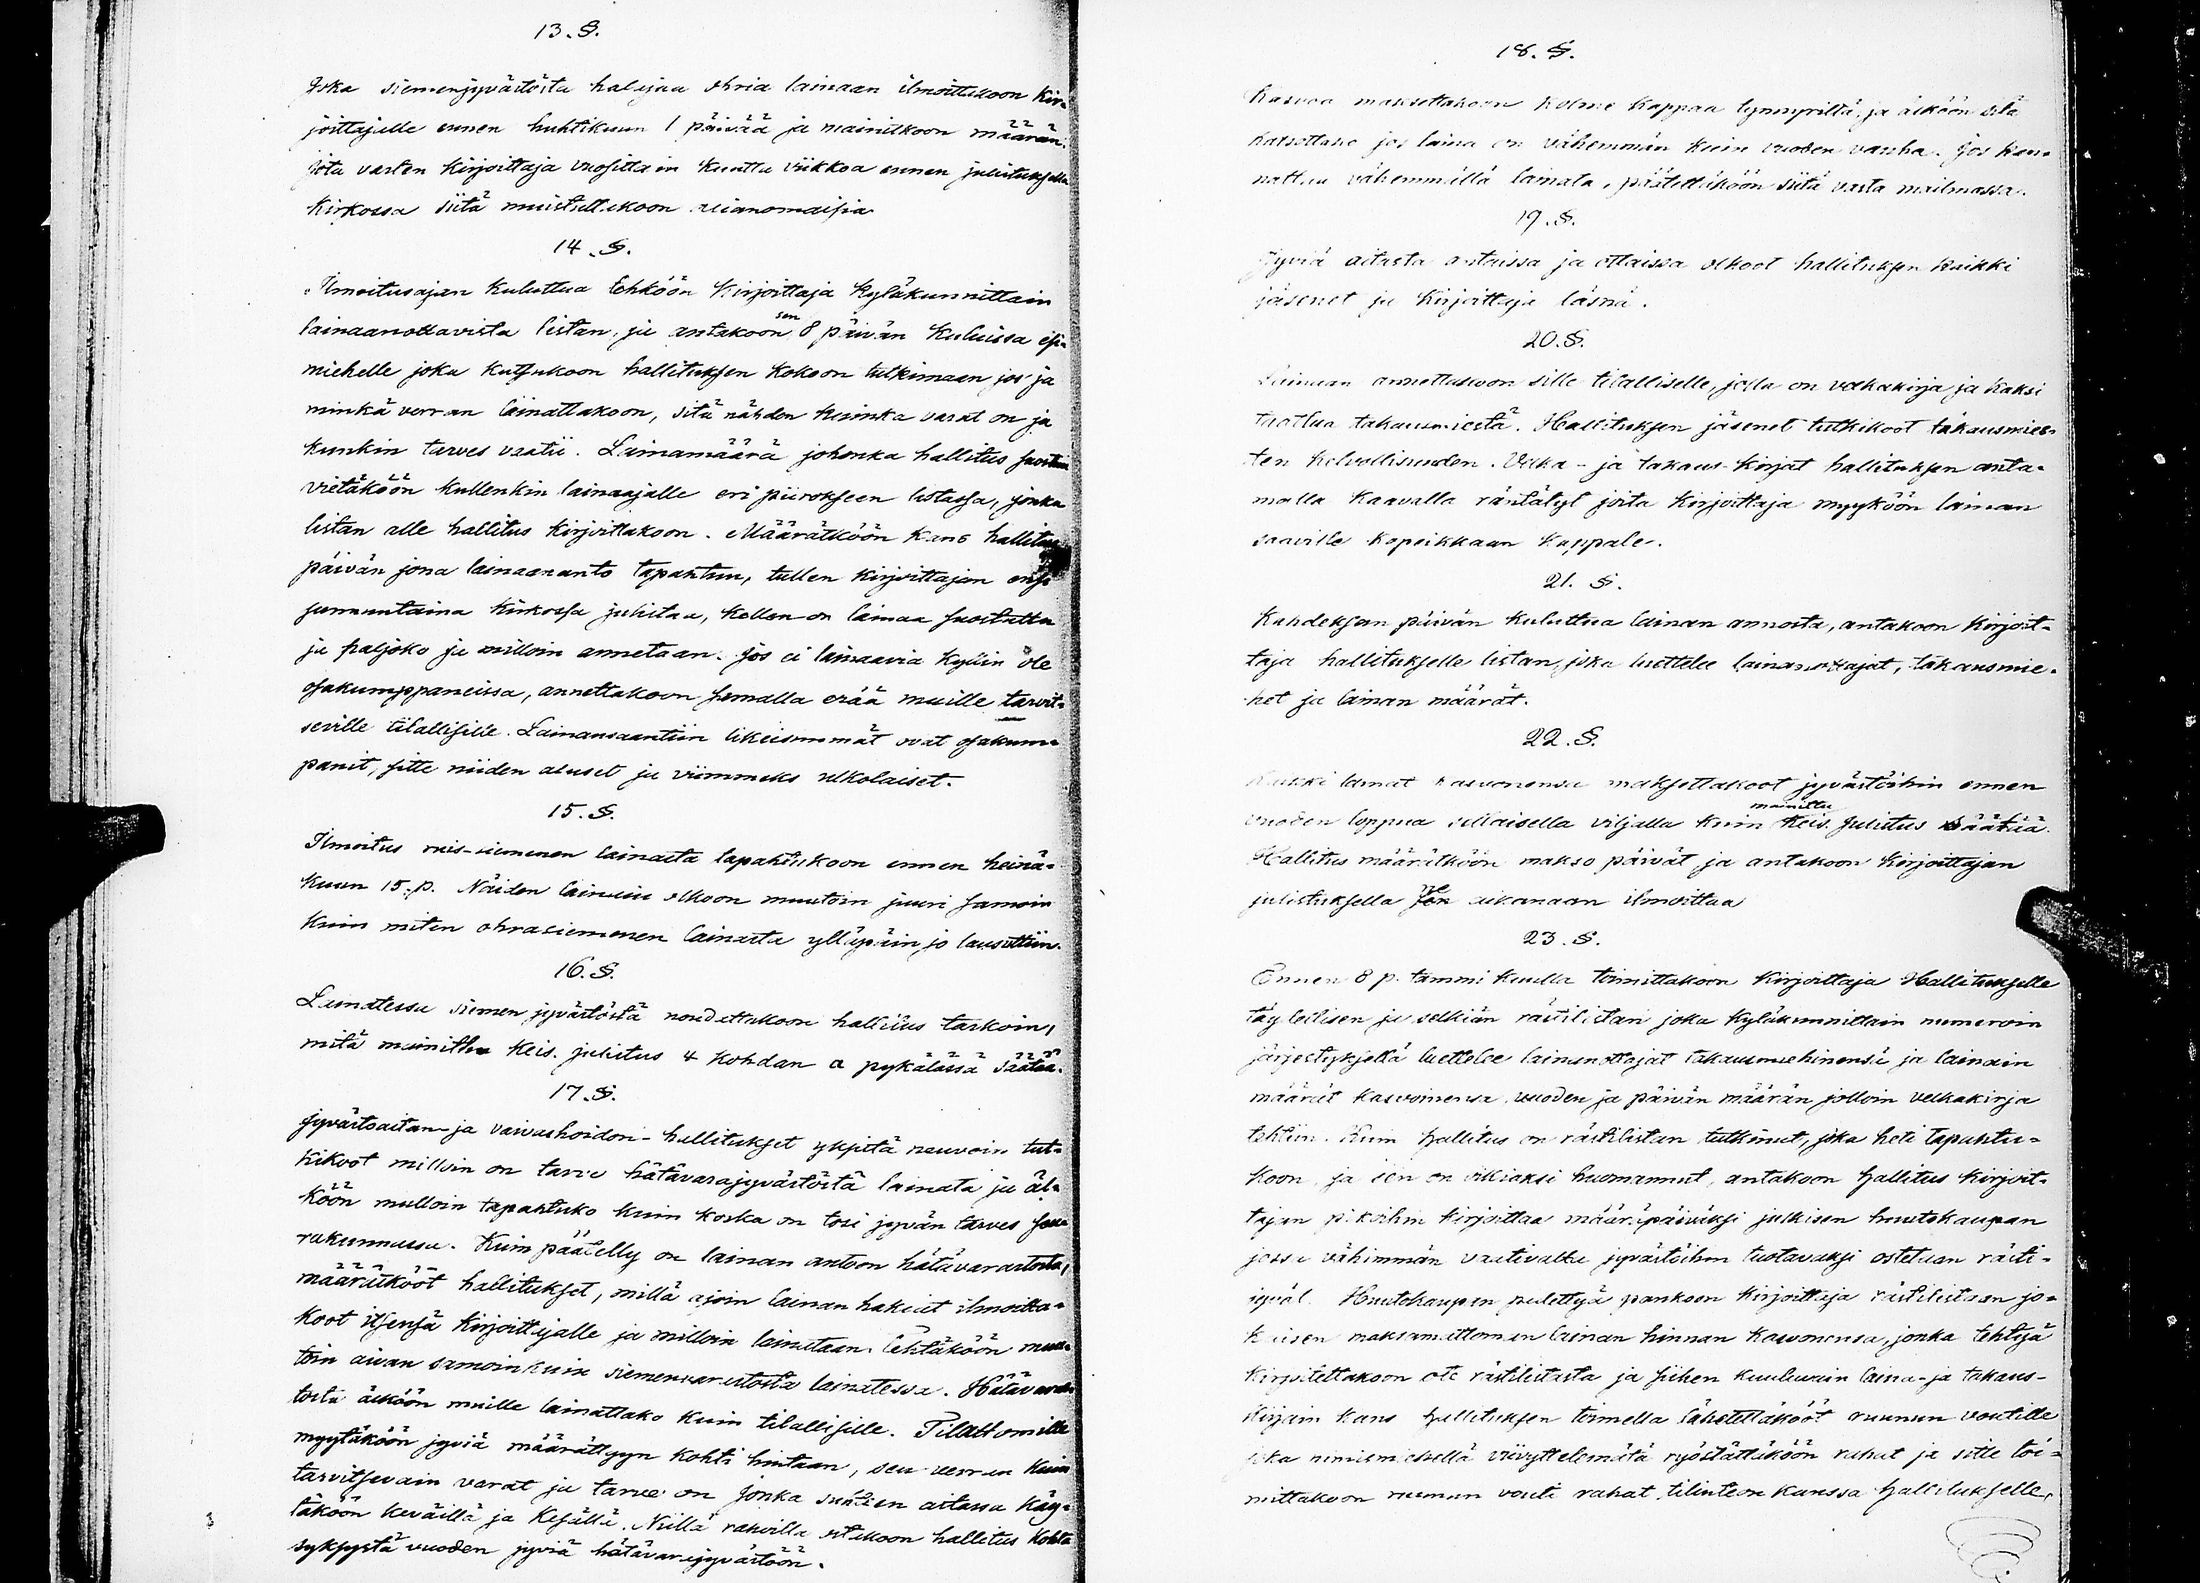 13. §.
Joka siemenjyvästöstä halajaa ohria lainaan ilmoittakoon Kir-
joittajalle ennen huhtikuun 1 päivää ja mainitkoon määrän.
Jota varten Kirjoittaja vuosittain kuutta viikkoa ennen julistuksella
Kirkossa siitä muistuttakoon asianomaisia
14. §.
Ilmoitusajan kuluttua tehköön Kirjoittaja Kyläkunnittain
lainaanottavista listan, ja antakoon sen 8 päivän kuluissa esi-
miehelle joka kutsukoon hallituksen kokoon tutkimaan jos ja
minkä verran lainattakoon, sitä nähden kuinka varat on ja
kunkin tarves vaatii. Lainamäärä johonka hallitus suostuu
vietäköön kullenkin lainaajalle eri piirokseen listassa, jonka
listan alle hallitus kirjoittakoon. Määrätköön kans hallitus
päivän jona lainaananto tapahtuu, tullen kirjoittajan ensi
sunnuntaina kirkossa julistaa, kellen on lainaa suostuttu
ja paljoko ja milloin annetaan. Jos ei lainaavia kyllin ole
osakumppaneissa, annettakoon samalla erää muille tarvit-
seville tilallisille. Lainansaantiin likeisemmät ovat osakum-
panit, sitte niiden alaset ja viimmeks ulkolaiset.
15. §.
Ilmoitus ruis-siemenen lainasta tapahtukoon ennen heinä-
kuun 15. p. Näiden lainain olkoon muutoin juuri samoin
kuin miten ohrasiemenen lainasta ylläpäin jo lausuttiin.
16. §.
Lainatessa siemen jyvästöstä noudattakoon hallitus tarkoin,
mitä mainittu Keis. julistus 4 kohdan a pykälässä säätää.
17. §.
Jyvästöaitan- ja vaivashoidon-hallitukset yksitä neuvoin tut-
kikoot milloin on tarve hätävarajyvästöstä lainata ja äl-
köön mulloin tapahtuko kuin koska on tosi jyvän tarves seu-
rakunnassa. Kuin päätelly on lainan antoon hätävarastosta,
määrätkööt hallitukset, millä ajoin lainan hakiat ilmoitta-
koot itsensä kirjoittajalle ja milloin lainataan. Tehtäköön muu-
toin aivan samoin kuin siemenvarastosta lainatessa. Hätävaras-
tosta älköön muille lainattako kuin tilallisille. Tilattomille
myytäköön jyviä määrättyyn kohti hintaan, sen verran kuin
tarvitsevain varat ja tarve on Jonka suhteen aitassa käy-
täköön keväillä ja kesällä. Niillä rahoilla ostakoon hallitus kohta
syksystä vuoden jyviä hätävarajyvästöön.
18. §.
Kasvoa maksettakoon kolme kappaa tynnyriltä, ja älköön sitä
katsottako jos laina on vähemmän kuin vuoden vanha. Jos kan-
nattaa vähemmällä lainata, päätettäköön siitä vasta mailmassa.
19. §.
Jyviä aitasta antaissa ja ottaissa olkoot hallituksen kaikki
jäsenet ja Kirjoittaja läsnä.
20. §.
Lainaan annettakoon sille tilalliselle, jolla on velkakirja ja kaksi
taattua takausmiestä. Hallituksen jäsenet tutkikoot takausmies-
ten kelvollisuuden. Velka- ja takaus-kirjat hallituksen anta-
malla kaavalla räntätyt joita Kirjoittaja myyköön lainan
saaville kopeikkaan kappale.
21. §.
Kahdeksan päivän kuluttua lainan annosta, antakoon Kirjoit-
taja hallitukselle listan, joka luettelee lainanottajat, takausmie-
het ja lainan määrät.
22. §.
Kaikki lainat kasvonensa maksettakoot jyvästöihin ennen
vuoden loppua sellaisella viljalla kuin mainittu Keis. julistus säätää.
Hallitus määrätköön makso päivät ja antakoon Kirjoittajan
julistuksella ne aikanaan ilmoittaa
23. §.
Ennen 8 p. tammi kuulla toimittakoon Kirjoittaja Hallitukselle
täydellisen ja selkiän rästilistan joka kyläkunnittain numeroin
järjestyksellä luettelee lainanottajat takausmiehinensä ja lainain
määrät kasvoinensa vuoden ja päivän määrän jolloin velkakirja
tehtiin. Kuin hallitus on rästilistan tutkinut, joka heti tapahtu-
koon, ja sen on oikiaksi huomannut, antakoon hallitus Kirjoit-
tajan pikoihin kirjoittaa määräpäiväksi julkisen huutokaupan
jossa vähimmän vaativalta jyvästöihin tuotavaksi ostetaan rästi-
jyvät. Huutokaupan päätettyä pankoon Kirjoittaja rästilistaan jo-
kaisen maksamattoman lainan hinnan kasvonensa, jonka tehtyä
kirjoitettakoon ote rästilistasta ja siihen kuuluvain laina- ja takaus-
kirjain kans hallituksen toimella lähetettäkööt ruunun voutille
joka nimismiehellä viivyttelemätä ryöstättäköön rahat ja sitte toi-
mittakoon ruunun vouti rahat tilinteon kanssa hallitukselle,